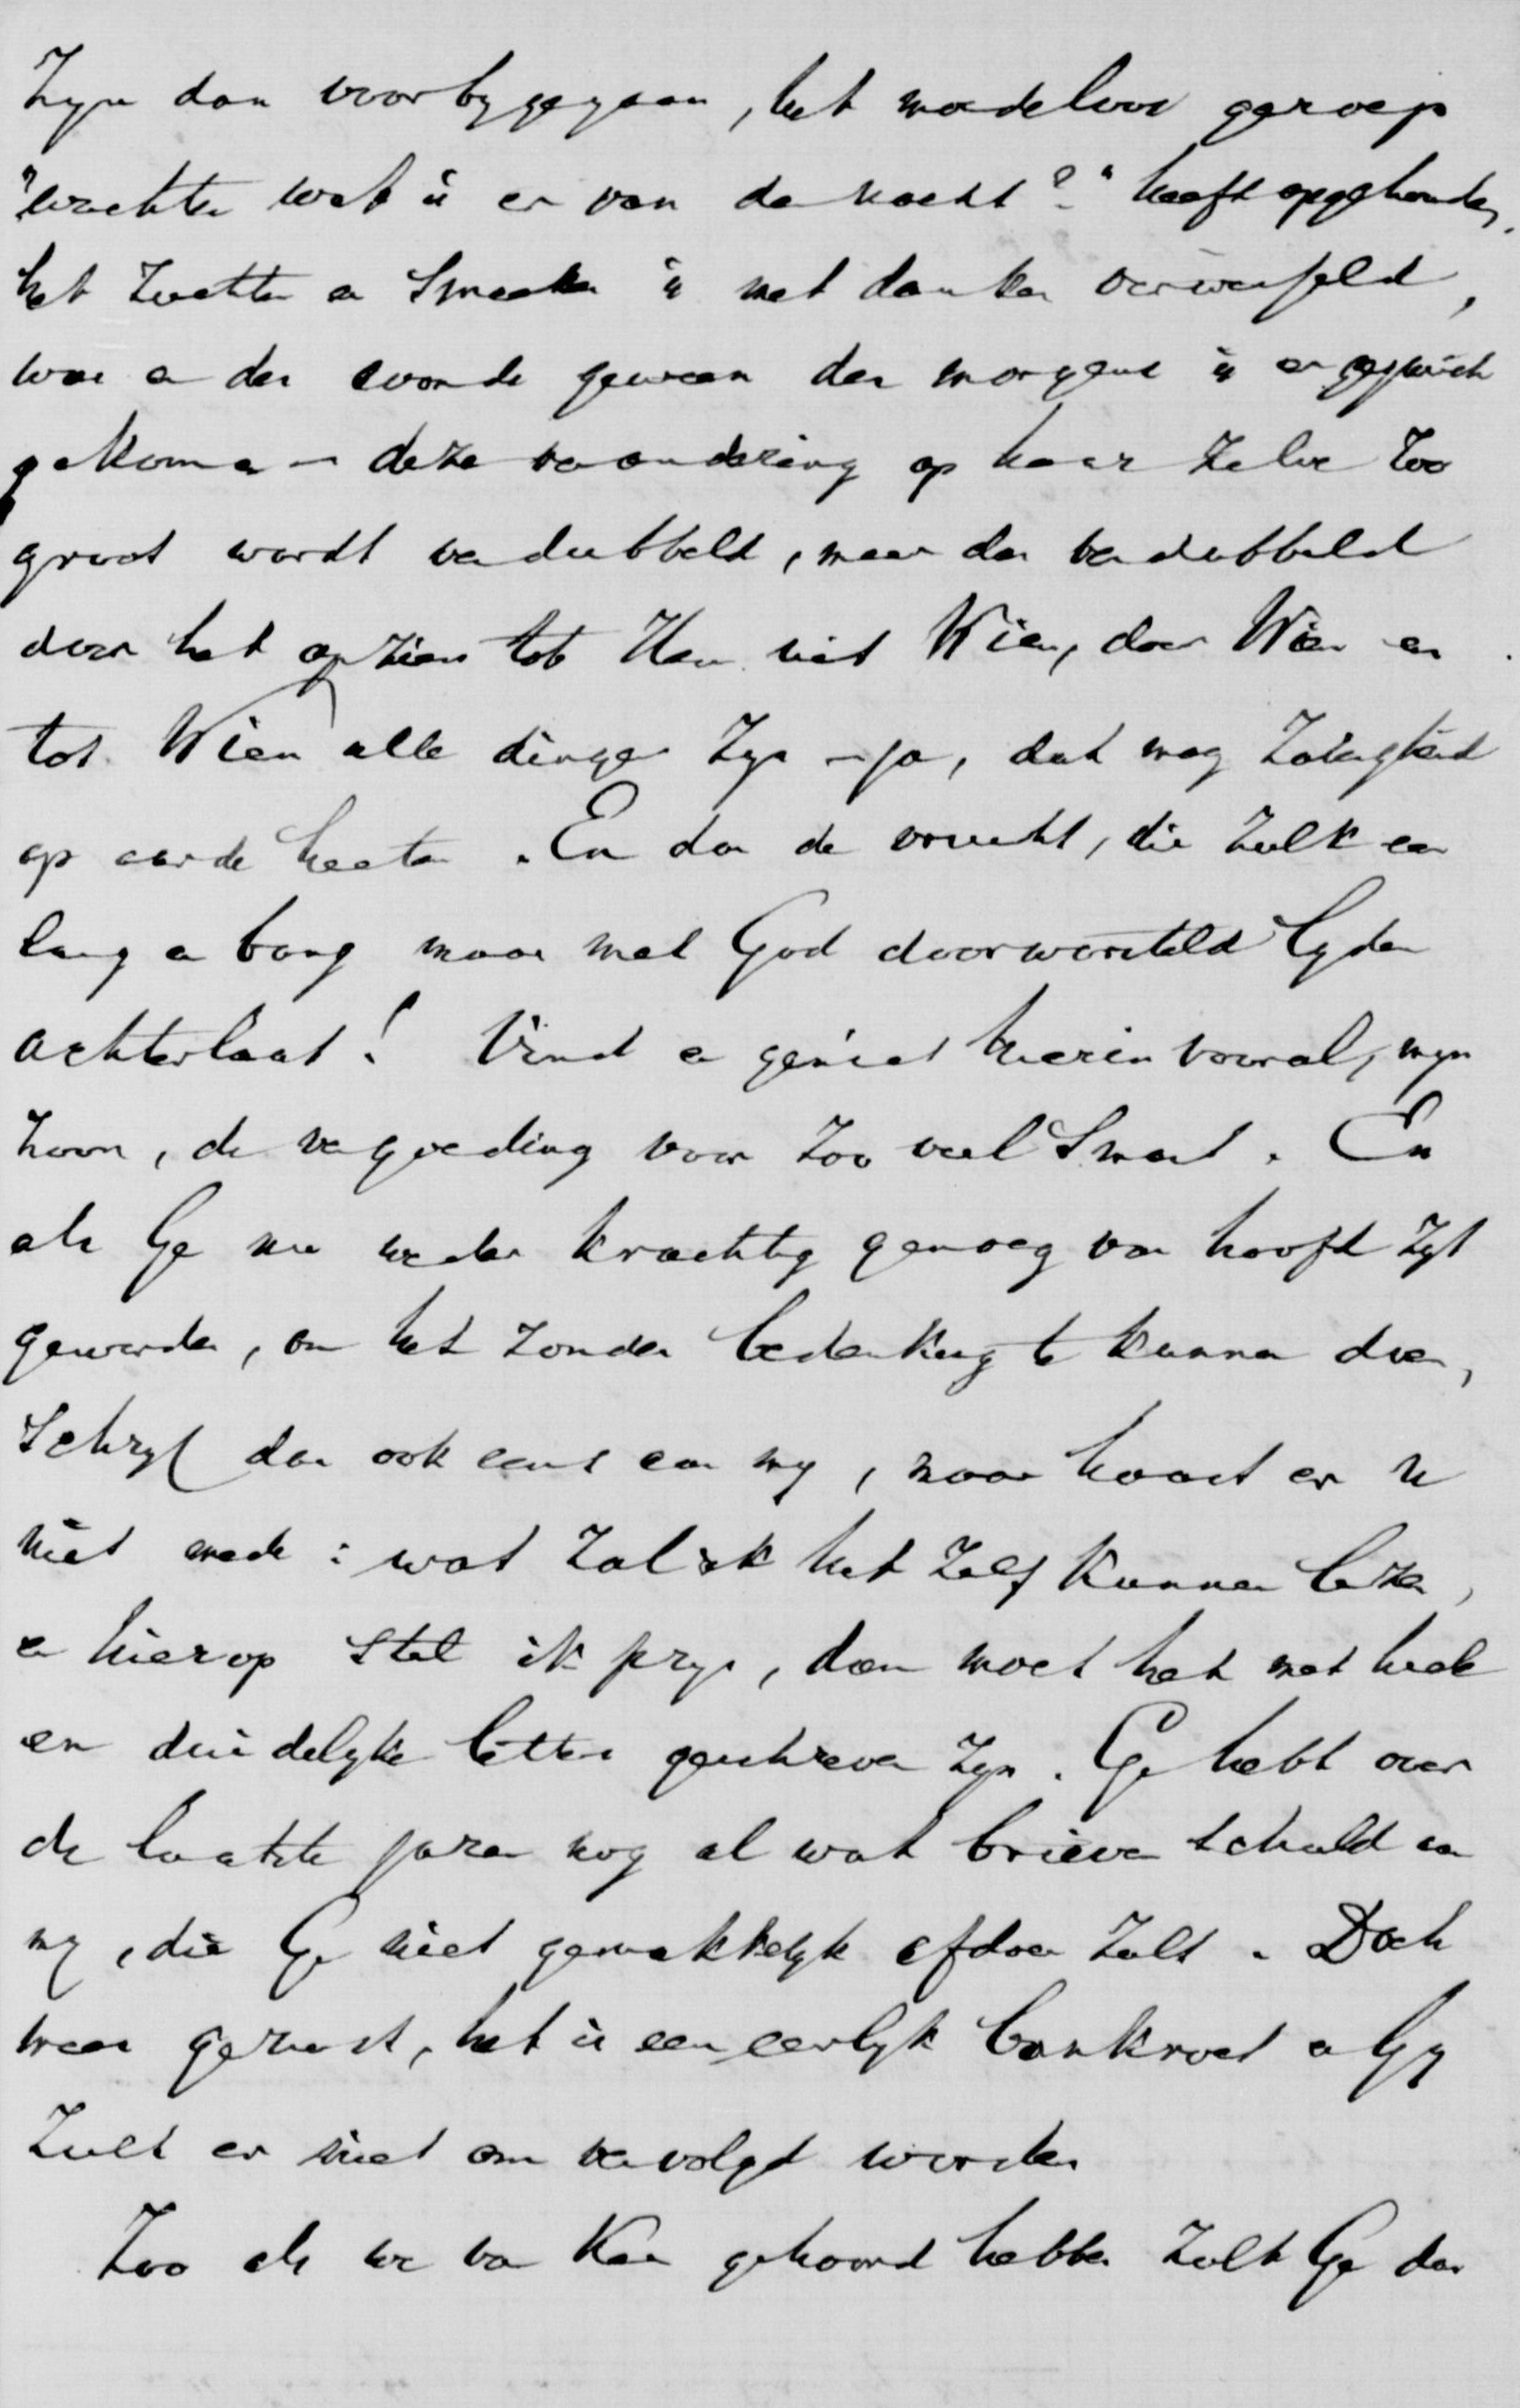 Zyn dan voorbygegaan, het moedeloos geroep
"wachter wat is er van de nacht?" heeft opgehouden,
het zuchten en smeeken is met danken verwisseld,
was er des avonds geween des morgens is er gejuich
gekomen – deze verandering op haar zelve zoo
groot wordt verdubbeld, meer dan verdubbeld
door het opzien tot Hem uit Wien, door Wien en
tot Wien alle dingen zyn – ja, dat mag zaligheid
op aarde heeten. En dan de vrucht, die zulk een
lang en bang maar met God doorworsteld lyden
achterlaat! Vind en geniet hierin vooral, myn
zoon, de vergoeding voor zoo veel smart. En
als Ge nu weder krachtig genoeg van hoofd zyt
geworden, om het zonder bedenking te kunnen doen,
schryf dan ook eens aan my, maar haast er U
niet mede: want zal ik het zelf kunnen lezen,
en hierop stel ik prys, dan moet het met
en duidelyke letters geschreven zyn. Ge hebt over
de laatste jaren nog al wat brieven schuld aan
my, die Ge niet gemakkelyk afdoen zult. Doch
wees gerust, het is een eerlyk bankroet en Gy
zult er niet om vervolgd worden
Zoo als we van gehoord hebben zult Ge dan